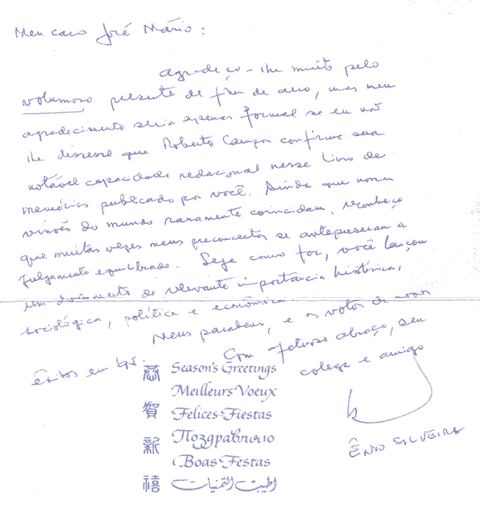 Meu caro José Mário:
Agradeço-lhe muito pelo
volumoso presente de fim de ano, mas meu
agradecimento seria apenas formal se eu não
lhe dissesse que Roberto Campos confirma sua
notável capacidade redacional nesse livro de
memórias publicado por você. Ainda que nossas
visões do mundo raramente coincidam, reconheço
que muitas vezes meus preconceitos se antepuseram a
julgamento equilibrado. Seja como for, você lançou
um documento de relevante importância histórica,
sociológica, política e econômica.
Meus parabéns, e os votos de novos
êxitos em
Com fetuoso abraço, seu
colega e amigo
ÊNIO SILVEIRA
恭 Season's Greetings
Meilleurs Voeux
賀 Felices Fiestas
新 Поздравляю
Boas Festas
禧 اطيب التمنيات